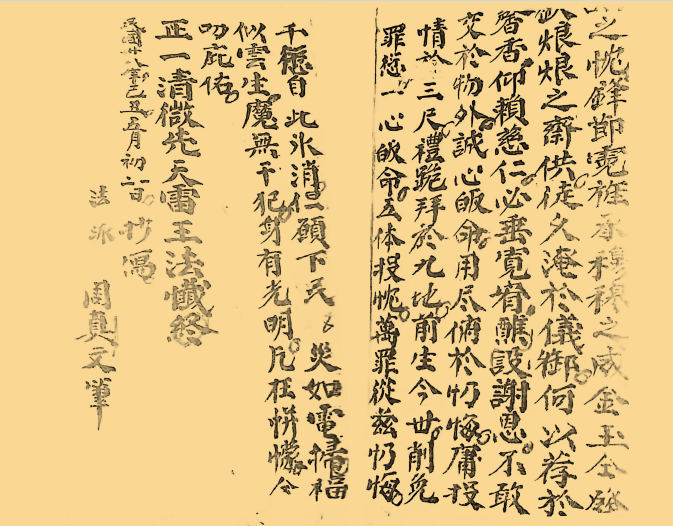 之忱鋒節霓旌承穆穆之威金玉仝
烺烺之齋供徒久淹於儀御何以荐於
馨香仰賴慈仁必垂寬宥醮設謝恩不敢
交於物外誠心皈命用尽俯於忉悔庸投
情於三尺禮跪拜於九地前生今世削免
罪愆一心皈命五体投忱萬罪從茲忉悔
千愆自此氷消仁願下民災如電掃福
似雲生魔無干犯身有光明凡在帡幪仝
叨庇佑
正一清微先天雷王法懺終
民國廿八年己丑五月初一日抄寫
法派 周真文筆